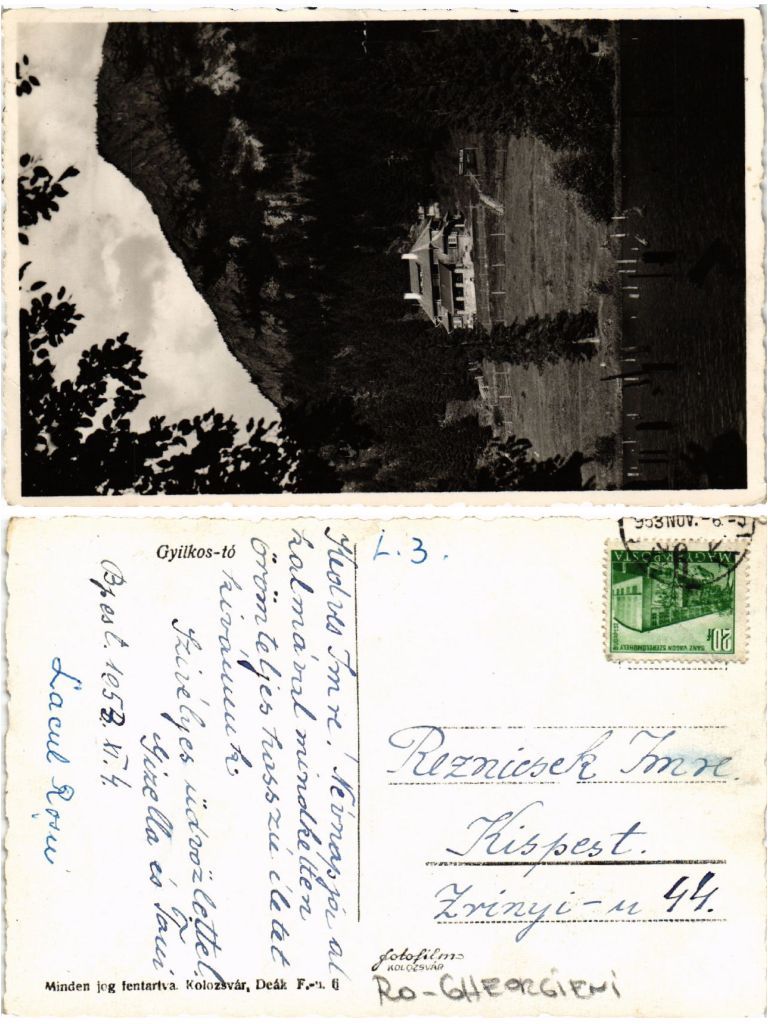 Gyilkos-tó
L. 3.
953 NOV. -6. -5
MAGYAR POSTA
GANZ VAGON SZERELŐMŰHELY
20f
Kedves Imre! Névnapja al
kalmával mindketten
örömteljes hosszú életet
kívánunk.
Szívélyes üdvözlettel
Gizella és
Bpest. 1953. XI. 4.
Lacul Roșu
Reznicsek Imre.
Kispest.
Zrínyi-u 44.
fotofilm
KOLOZSVÁR
Minden jog fentartva. Kolozsvár, Deák F.-u. 6
RO-GHEORGIENI